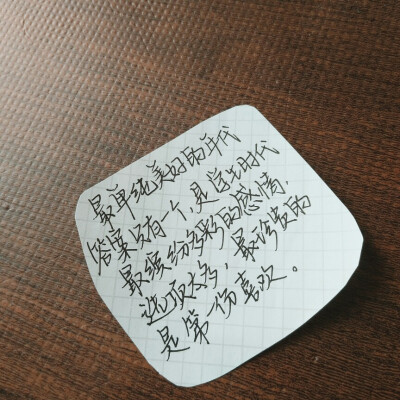 最单纯美好的年代
答案只有一个，是学生时代
最缤纷多彩的感情，
选项太多，最珍贵的
是第一份喜欢。